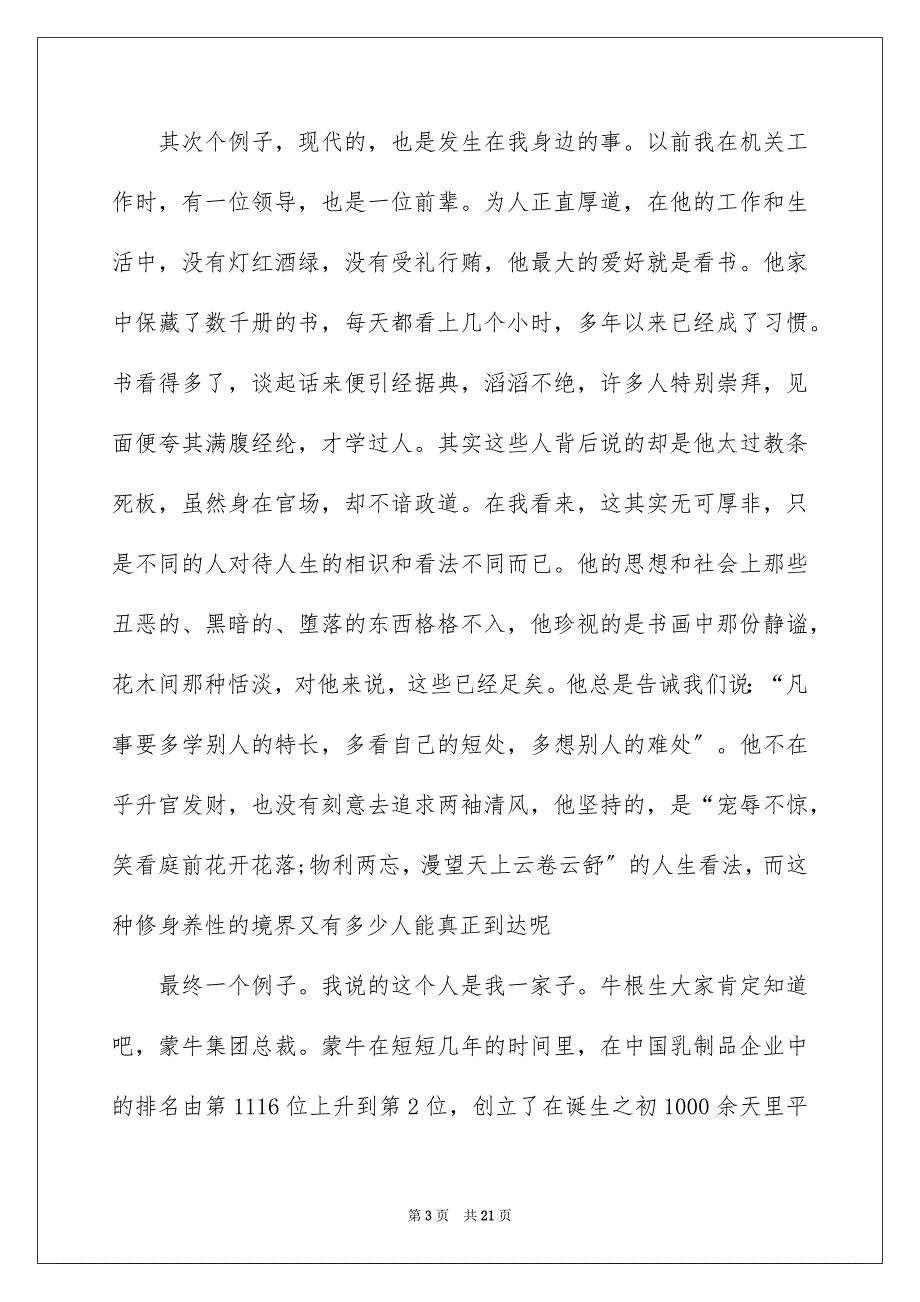 其次个例子，现代的，也是发生在我身边的事。以前我在机关工
作时，有一位领导，也是一位前辈。为人正直厚道，在他的工作和生
活中，没有灯红酒绿，没有受礼行贿，他最大的爱好就是看书。他家
中保藏了数千册的书，每天都看上几个小时，多年以来已经成了习惯。
书看得多了，谈起话来便引经据典，滔滔不绝，许多人特别崇拜，见
面便夸其满腹经纶，才学过人。其实这些人背后说的却是他太过教条
死板，虽然身在官场，却不谙政道。在我看来，这其实无可厚非，只
是不同的人对待人生的相识和看法不同而已。他的思想和社会上那些
丑恶的、黑暗的、堕落的东西格格不入，他珍视的是书画中那份静谧，
花木间那种恬淡，对他来说，这些已经足矣。他总是告诫我们说：“凡
事要多学别人的特长，多看自己的短处，多想别人的难处〞。他不在
乎升官发财，也没有刻意去追求两袖清风，他坚持的，是“宠辱不惊，
笑看庭前花开花落;物利两忘，漫望天上云卷云舒〞的人生看法，而这
种修身养性的境界又有多少人能真正到达呢
最终一个例子。我说的这个人是我一家子。牛根生大家肯定知道
吧，蒙牛集团总裁。蒙牛在短短几年的时间里，在中国乳制品企业中
的排名由第 1116 位上升到第 2 位，创立了在诞生之初 1000 余天里平
第 3 页 共 21 页